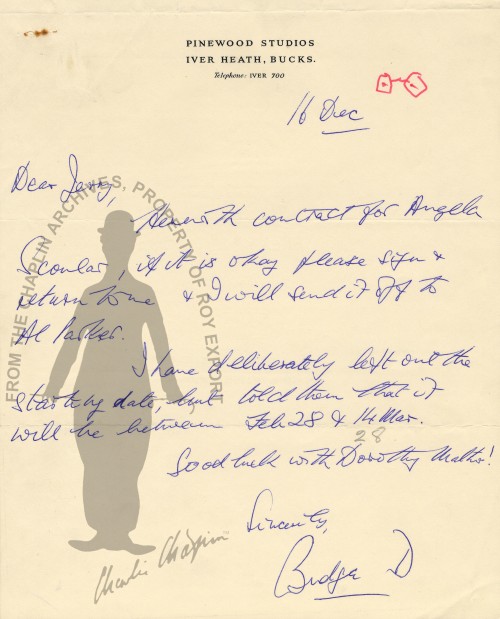 PINEWOOD STUDIOS
IVER HEATH, BUCKS.
Telephone: IVER 700
16 Dec
Dear Jerry,
Herewith contract for Angela
Scoular, if it is okay please sign &
return to me & I will send it off to
Al Parker.
I have deliberately left out the
starting date, but told them that it
will be between Feb 28 & 14 Mar.
28
Good luck with Dorothy
Sincerely,
D
FROM THE CHAPLIN ARCHIVES, PROPERTY OF ROY EXPORT
Charlie Chaplin™